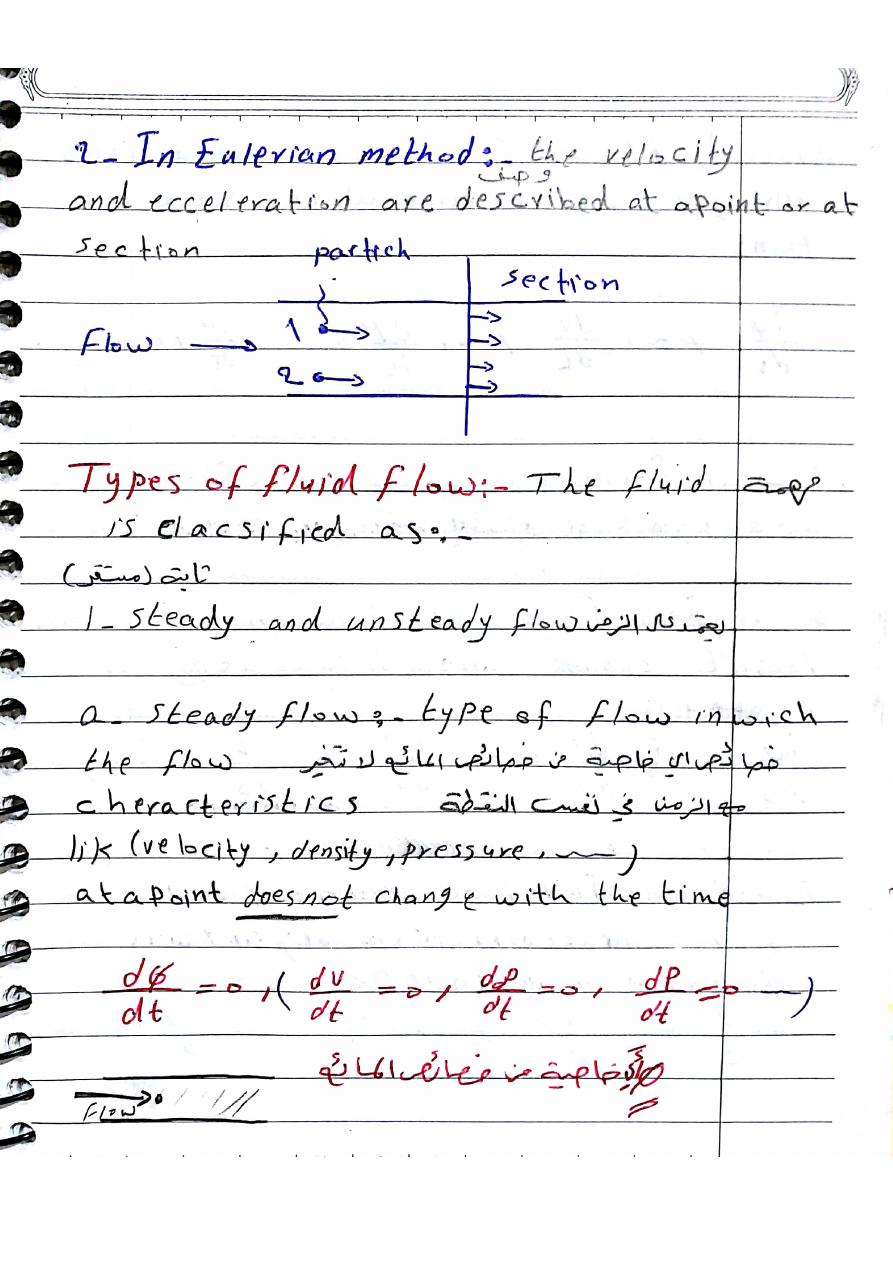 2- In Eulerian method:- the velocity
وصف
and ecceleration are described at apoint or at
section
partich
section
1
Flow
2
Types of fluid flow:- The fluid
is elacsified as:-
ثابتة (مستقر)
1- steady and unsteady flow يعتمد على الزمن
a- steady flow:- type of flow in wich
the flow خصائص اي خاصية من خصائص المائع لا تتغير
cheracteristics مع الزمن في نفس النقطة
lik (velocity, density, pressure, ~~)
at apoint does not change with the time
dϕ/dt = 0, ( dV/dt = 0, dρ/dt = 0, dP/dt = 0 ~~ )
ϕ أي خاصية من خصائص المائع
Flow